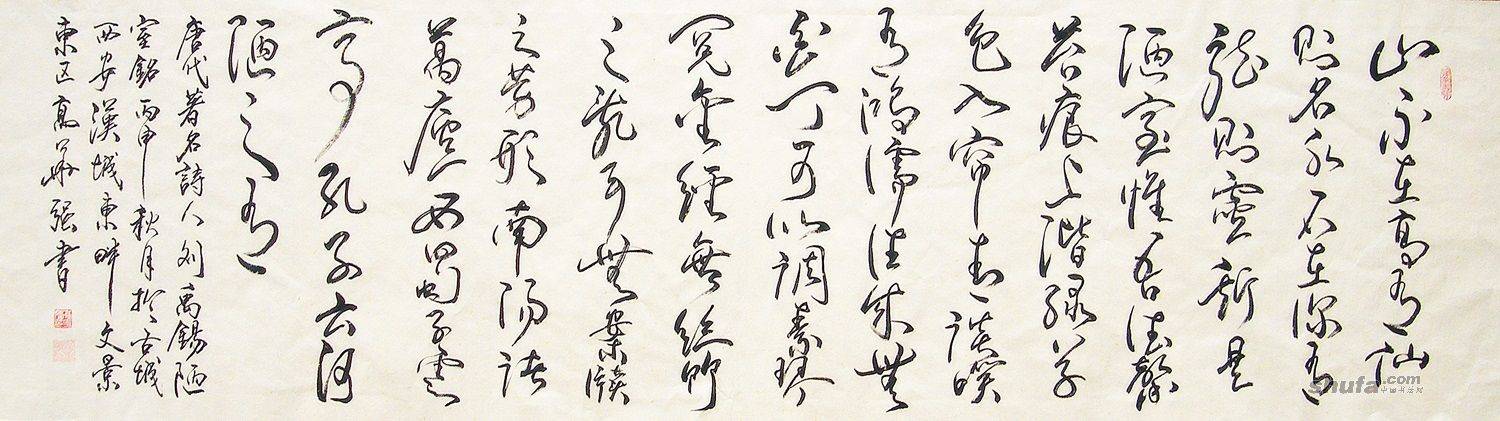 山不在高有仙
则名水不在深有
龙则靈斯是
陋室惟吾德馨
苔痕上階绿草
色入帘青談笑
有鸿儒往来無
白丁可以调素琴
阅金经無丝竹
之乱耳無案牍
之劳形南阳诸
葛廬西蜀子雲
亭孔子云何
陋之有
唐代著名詩人刘禹錫陋
室銘丙申秋月於古城
西安漢城東畔文景
東区高華强書
shufa.com
中国书法网